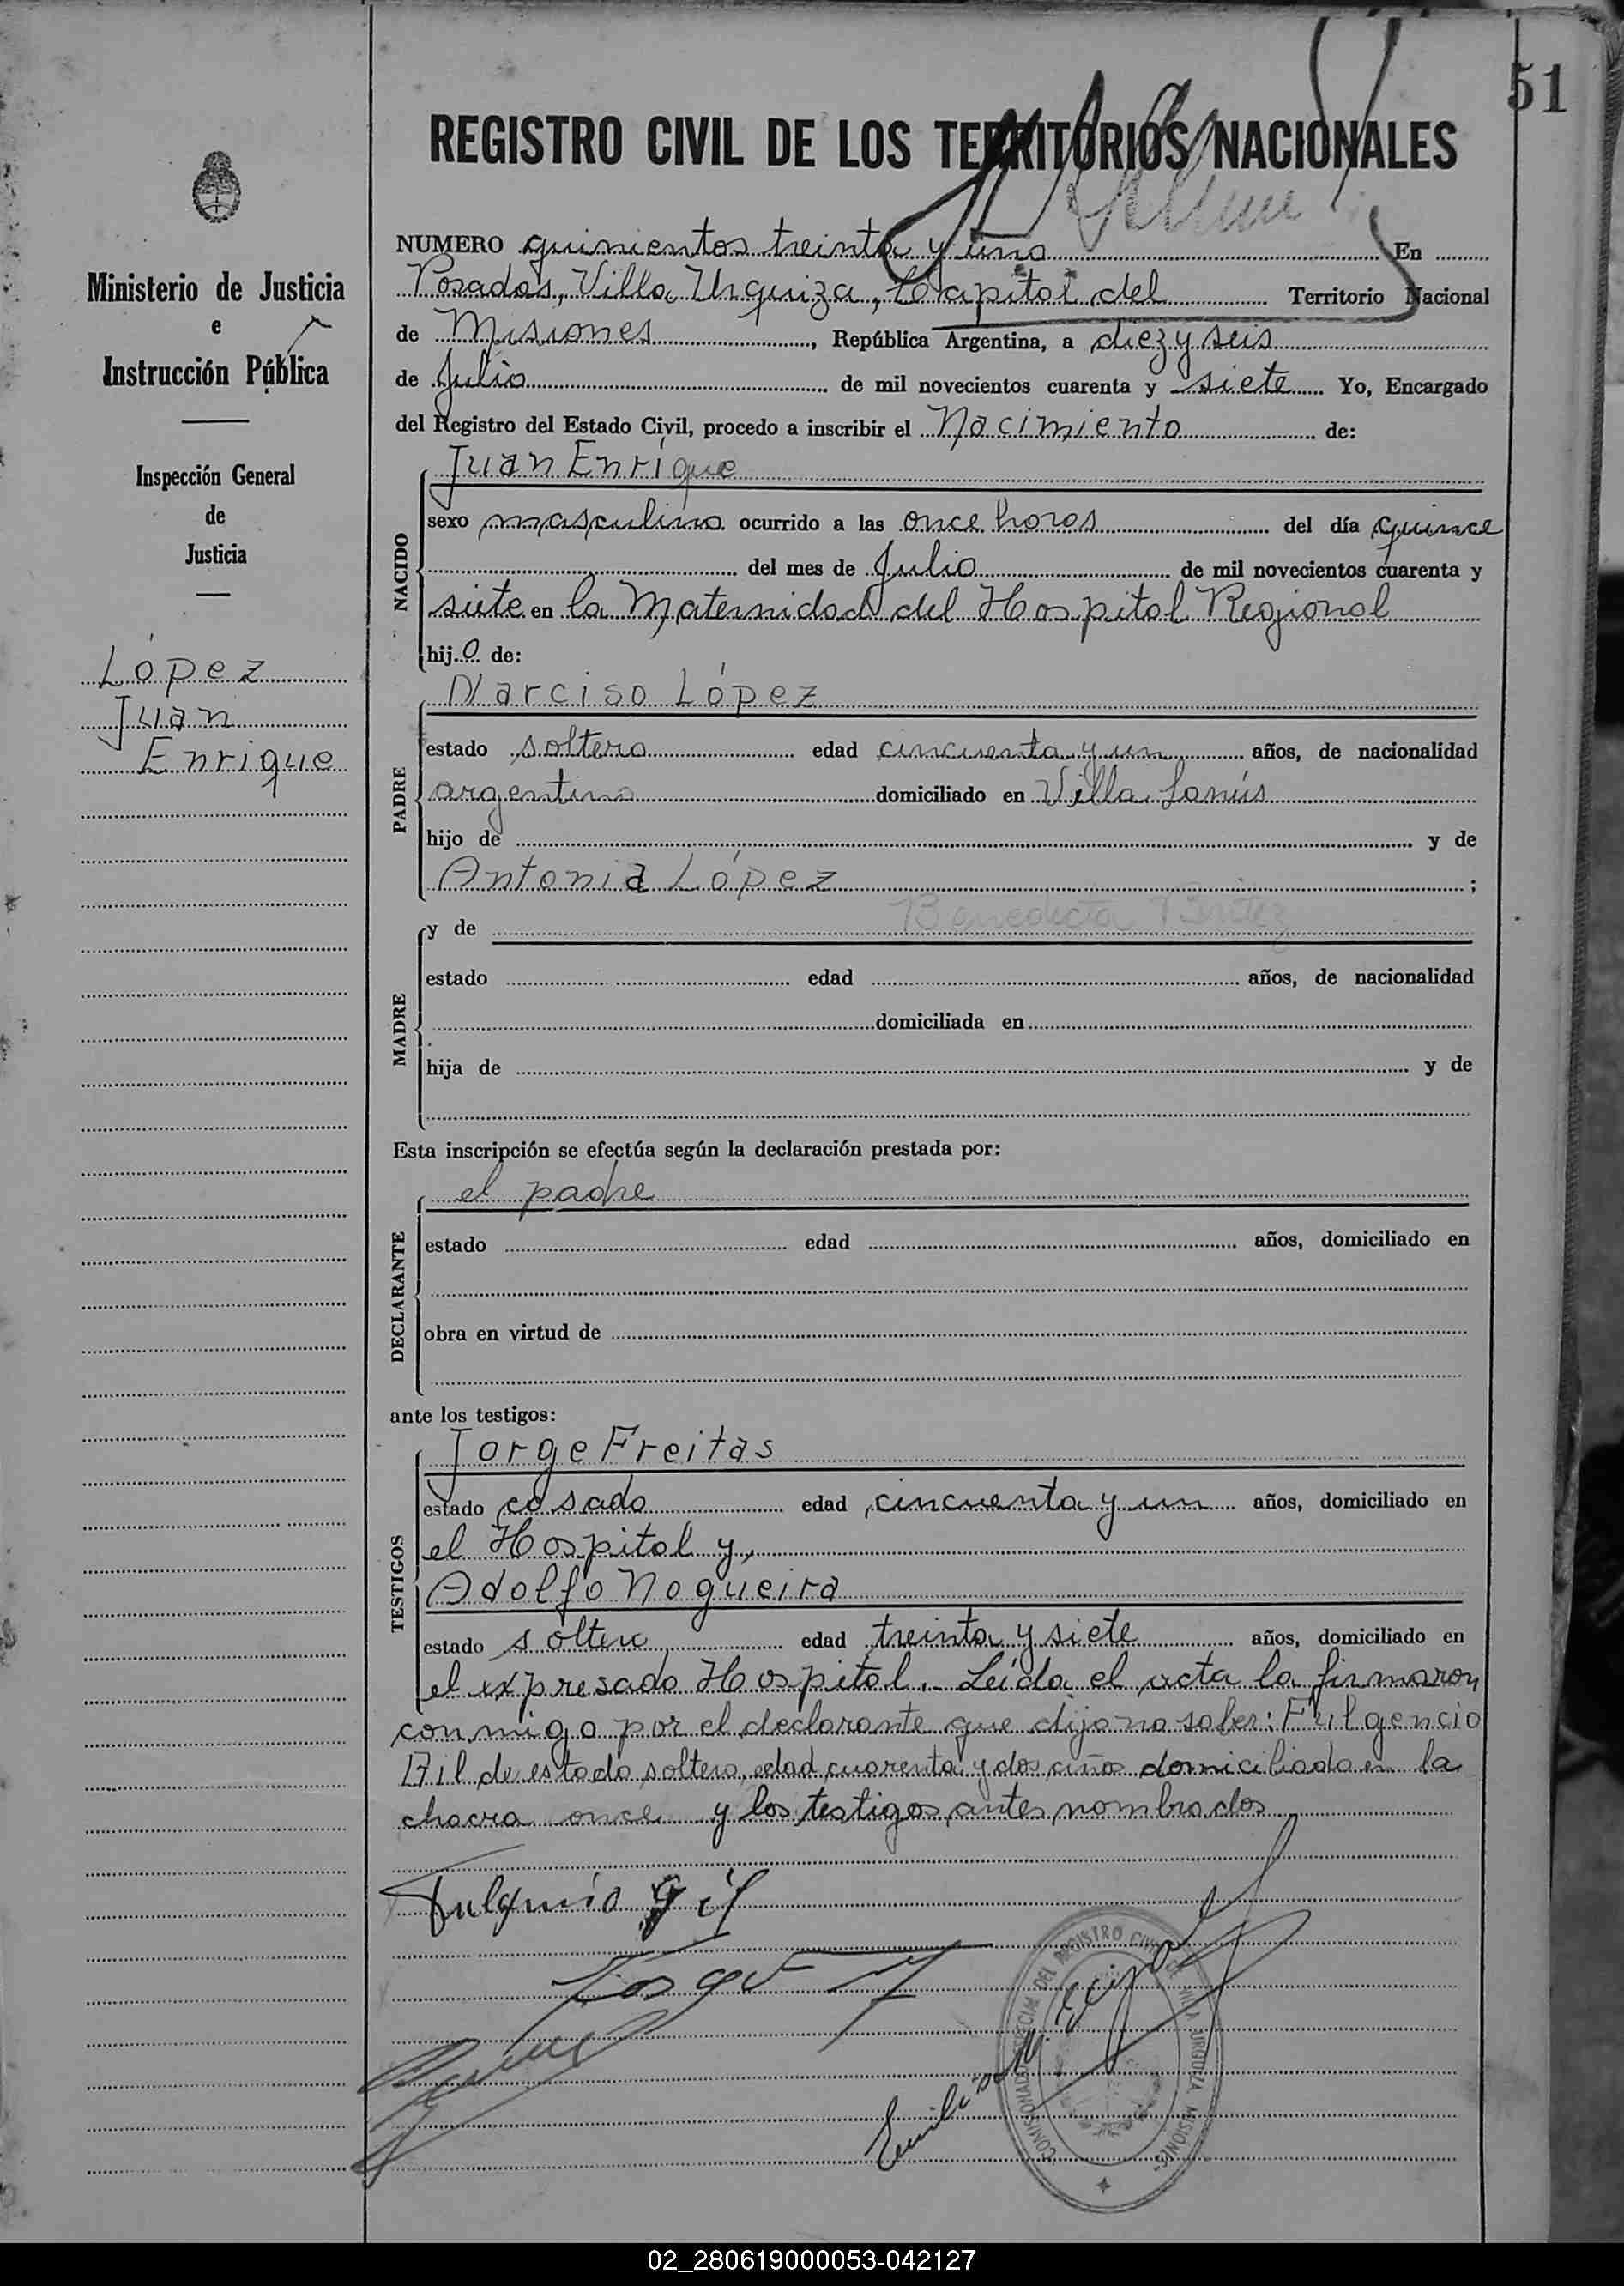 51
REGISTRO CIVIL DE LOS TERRITORIOS NACIONALES
Ministerio de Justicia
e
Instrucción Pública
Inspección General
de
Justicia
López
Juan
Enrique
NUMERO quinientos treinta y uno En
Posadas, Villa Urquiza, Capital del Territorio Nacional
de Misiones, República Argentina, a diez y seis
de Julio de mil novecientos cuarenta y siete Yo, Encargado
del Registro del Estado Civil, procedo a inscribir el Nacimiento de:
NACIDO
Juan Enrique
sexo masculino ocurrido a las once horas del día quince
del mes de Julio de mil novecientos cuarenta y
siete en la Maternidad del Hospital Regional
hijo de:
PADRE
Narciso López
estado soltero edad cincuenta y un años, de nacionalidad
argentina domiciliado en Villa Lanús
hijo de y de
Antonia López ;
MADRE
Benedicta Benitez
y de
estado edad años, de nacionalidad
domiciliada en
hija de y de
Esta inscripción se efectúa según la declaración prestada por:
DECLARANTE
el padre
estado edad años, domiciliado en
obra en virtud de
ante los testigos:
TESTIGOS
Jorge Freitas
estado casado edad cincuenta y un años, domiciliado en
el Hospital y,
Adolfo Nogueira
estado soltero edad treinta y siete años, domiciliado en
el expresado Hospital. Leída el acta la firmaron
conmigo por el declarante que dijo no saber: Fulgencio
Gil de estado soltero, edad cuarenta y dos años domiciliado en la
chacra once y los testigos antes nombrados
Fulgencio Gil
COMISIONADO ESPECIAL DEL REGISTRO CIVIL DE VILLA URQUIZA MISIONES
02_280619000053-042127